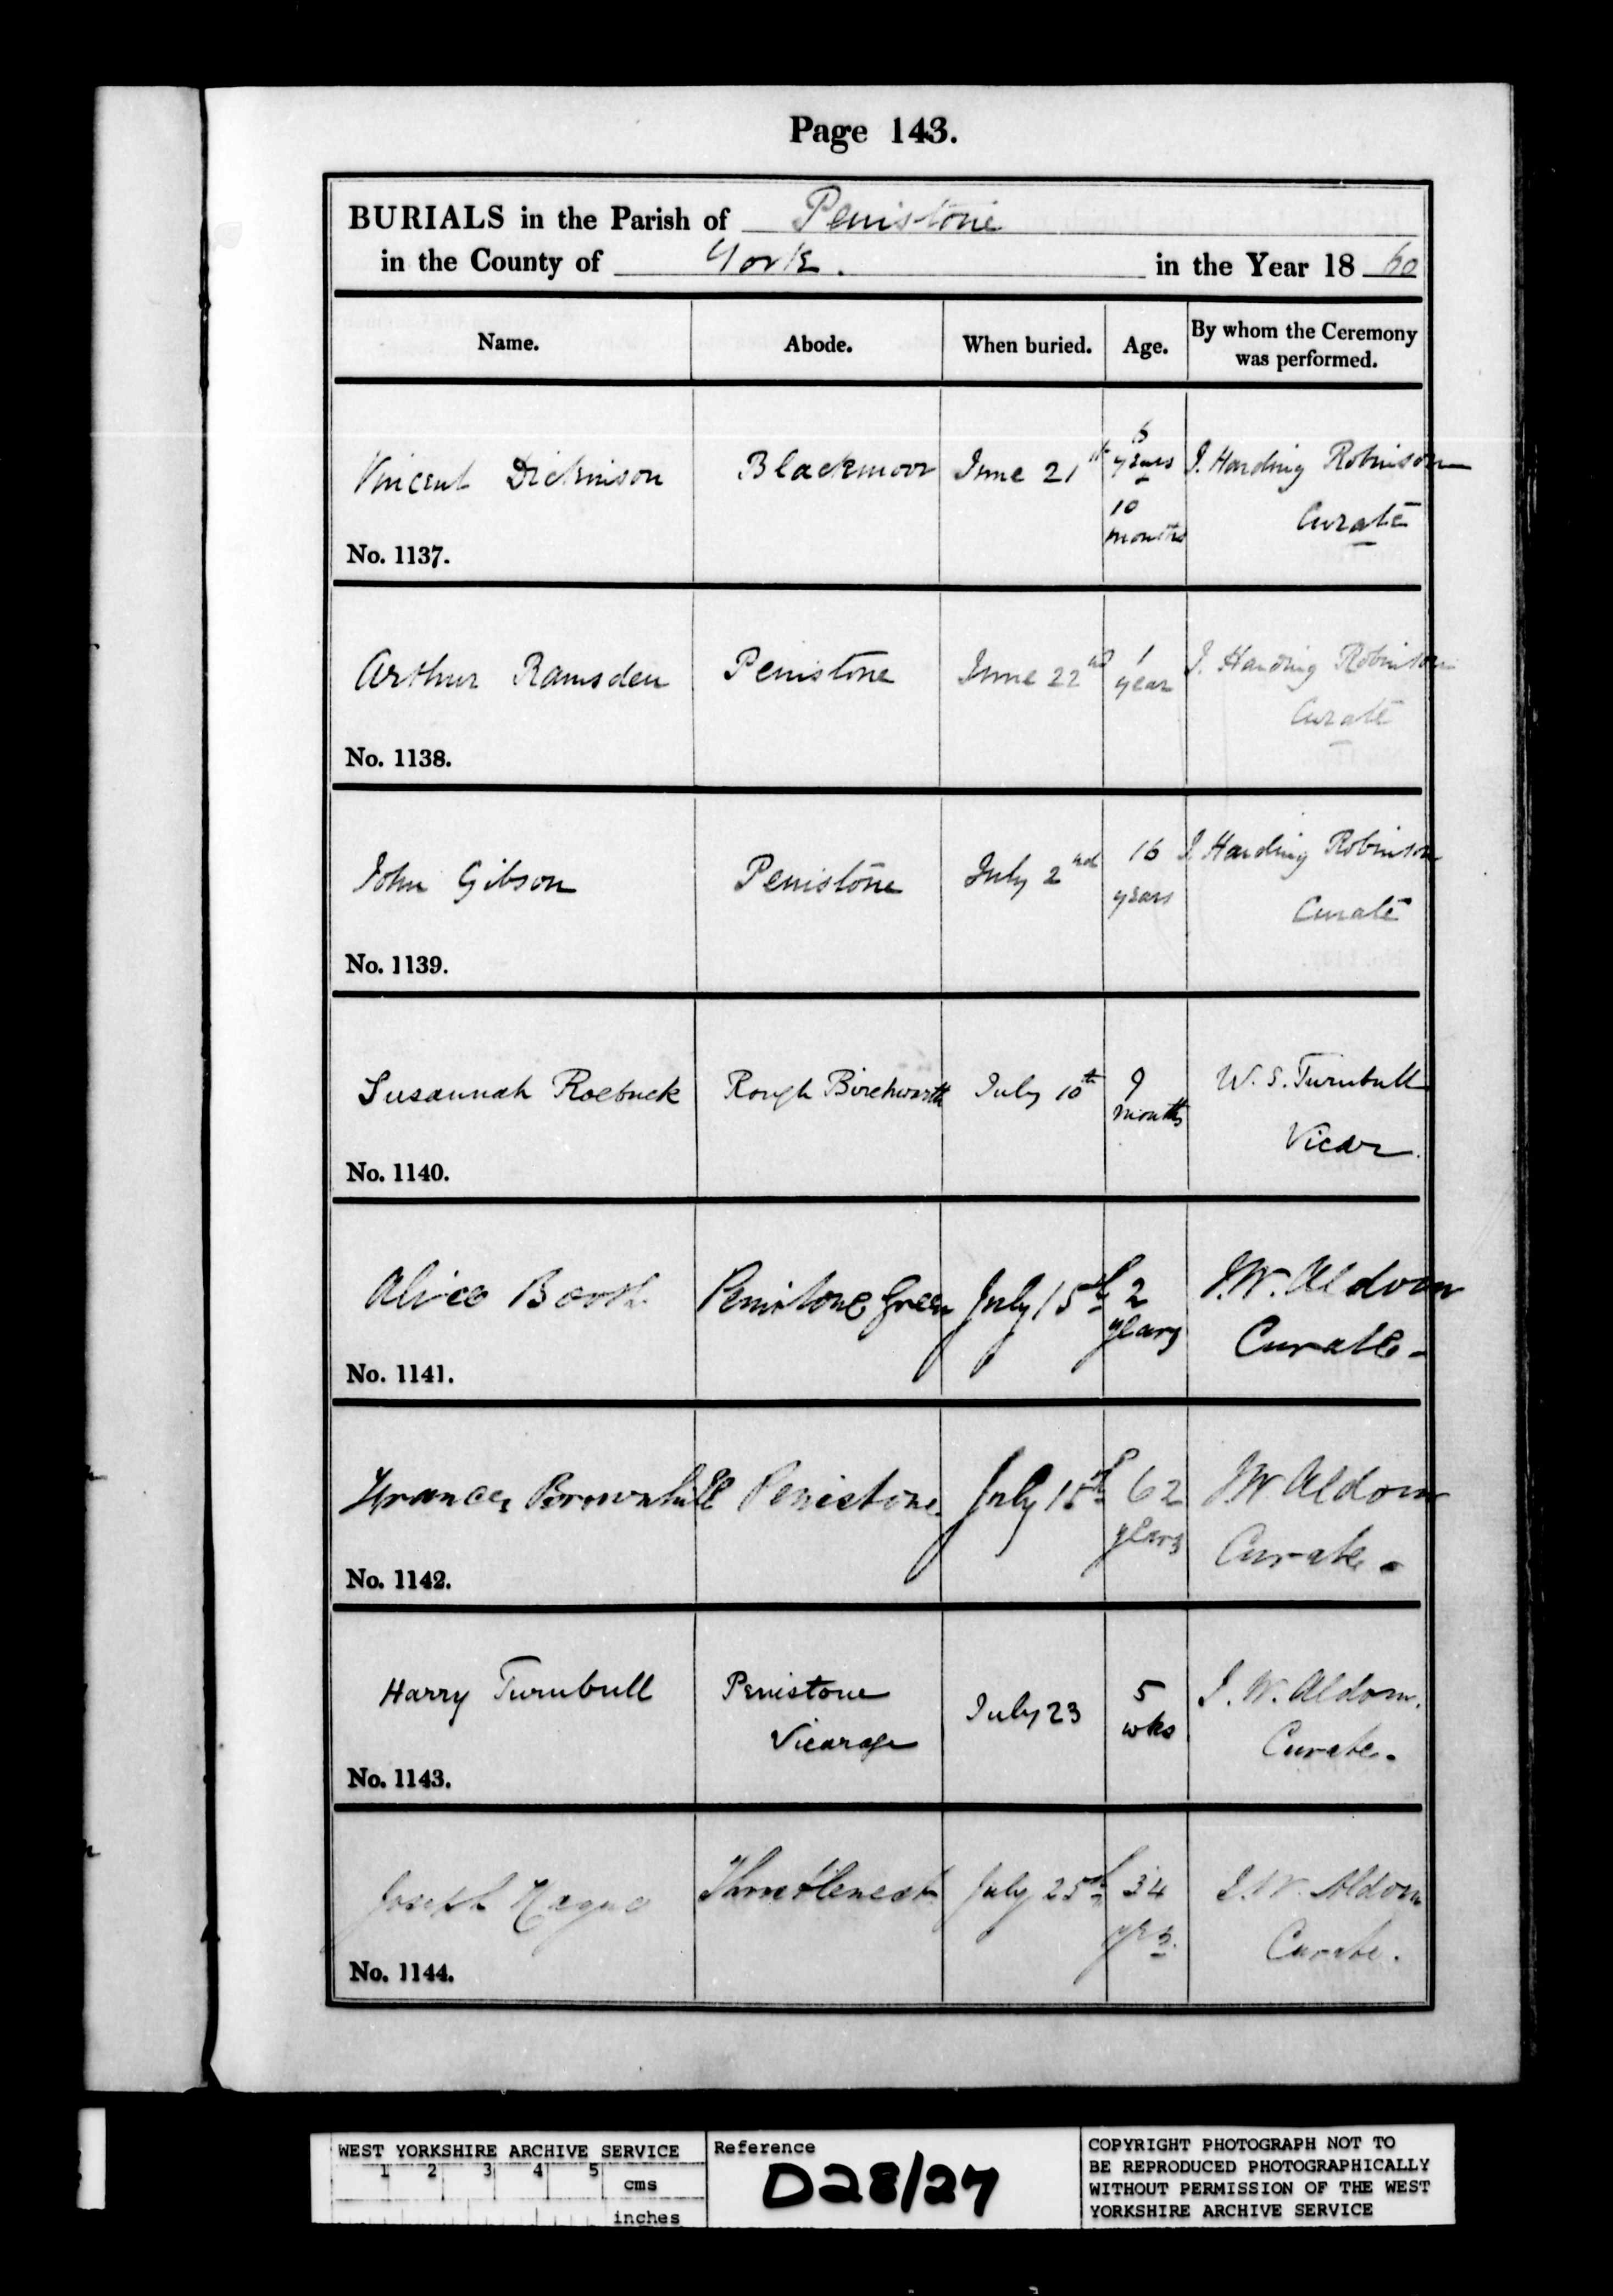 Page 143.
BURIALS in the Parish of Penistone
in the County of York. in the Year 18 60
Name. Abode. When buried. Age. By whom the Ceremony was performed.
Vincent Dickinson Blackmoor June 21st 6 years 10 months J. Harding Robinson Curate
No. 1137.
Arthur Ramsden Penistone June 22nd 1 year J. Harding Robinson Curate
No. 1138.
John Gibson Penistone July 2nd 16 years J. Harding Robinson Curate
No. 1139.
Susannah Roebuck Rough Birchworth July 10th 9 months W. S. Turnbull Vicar
No. 1140.
Alice Booth Penistone Green July 15th 2 years J. W. Aldom Curate
No. 1141.
Frances Brownhill Penistone July 15th 62 years J W Aldom Curate
No. 1142.
Harry Turnbull Penistone Vicarage July 23 5 wks J. W. Aldom. Curate.
No. 1143.
Joseph Hague July 25th 34 yrs. J. W. Aldom Curate.
No. 1144.
WEST YORKSHIRE ARCHIVE SERVICE
1 2 3 4 5 cms
inches
Reference
D28/27
COPYRIGHT PHOTOGRAPH NOT TO
BE REPRODUCED PHOTOGRAPHICALLY
WITHOUT PERMISSION OF THE WEST
YORKSHIRE ARCHIVE SERVICE